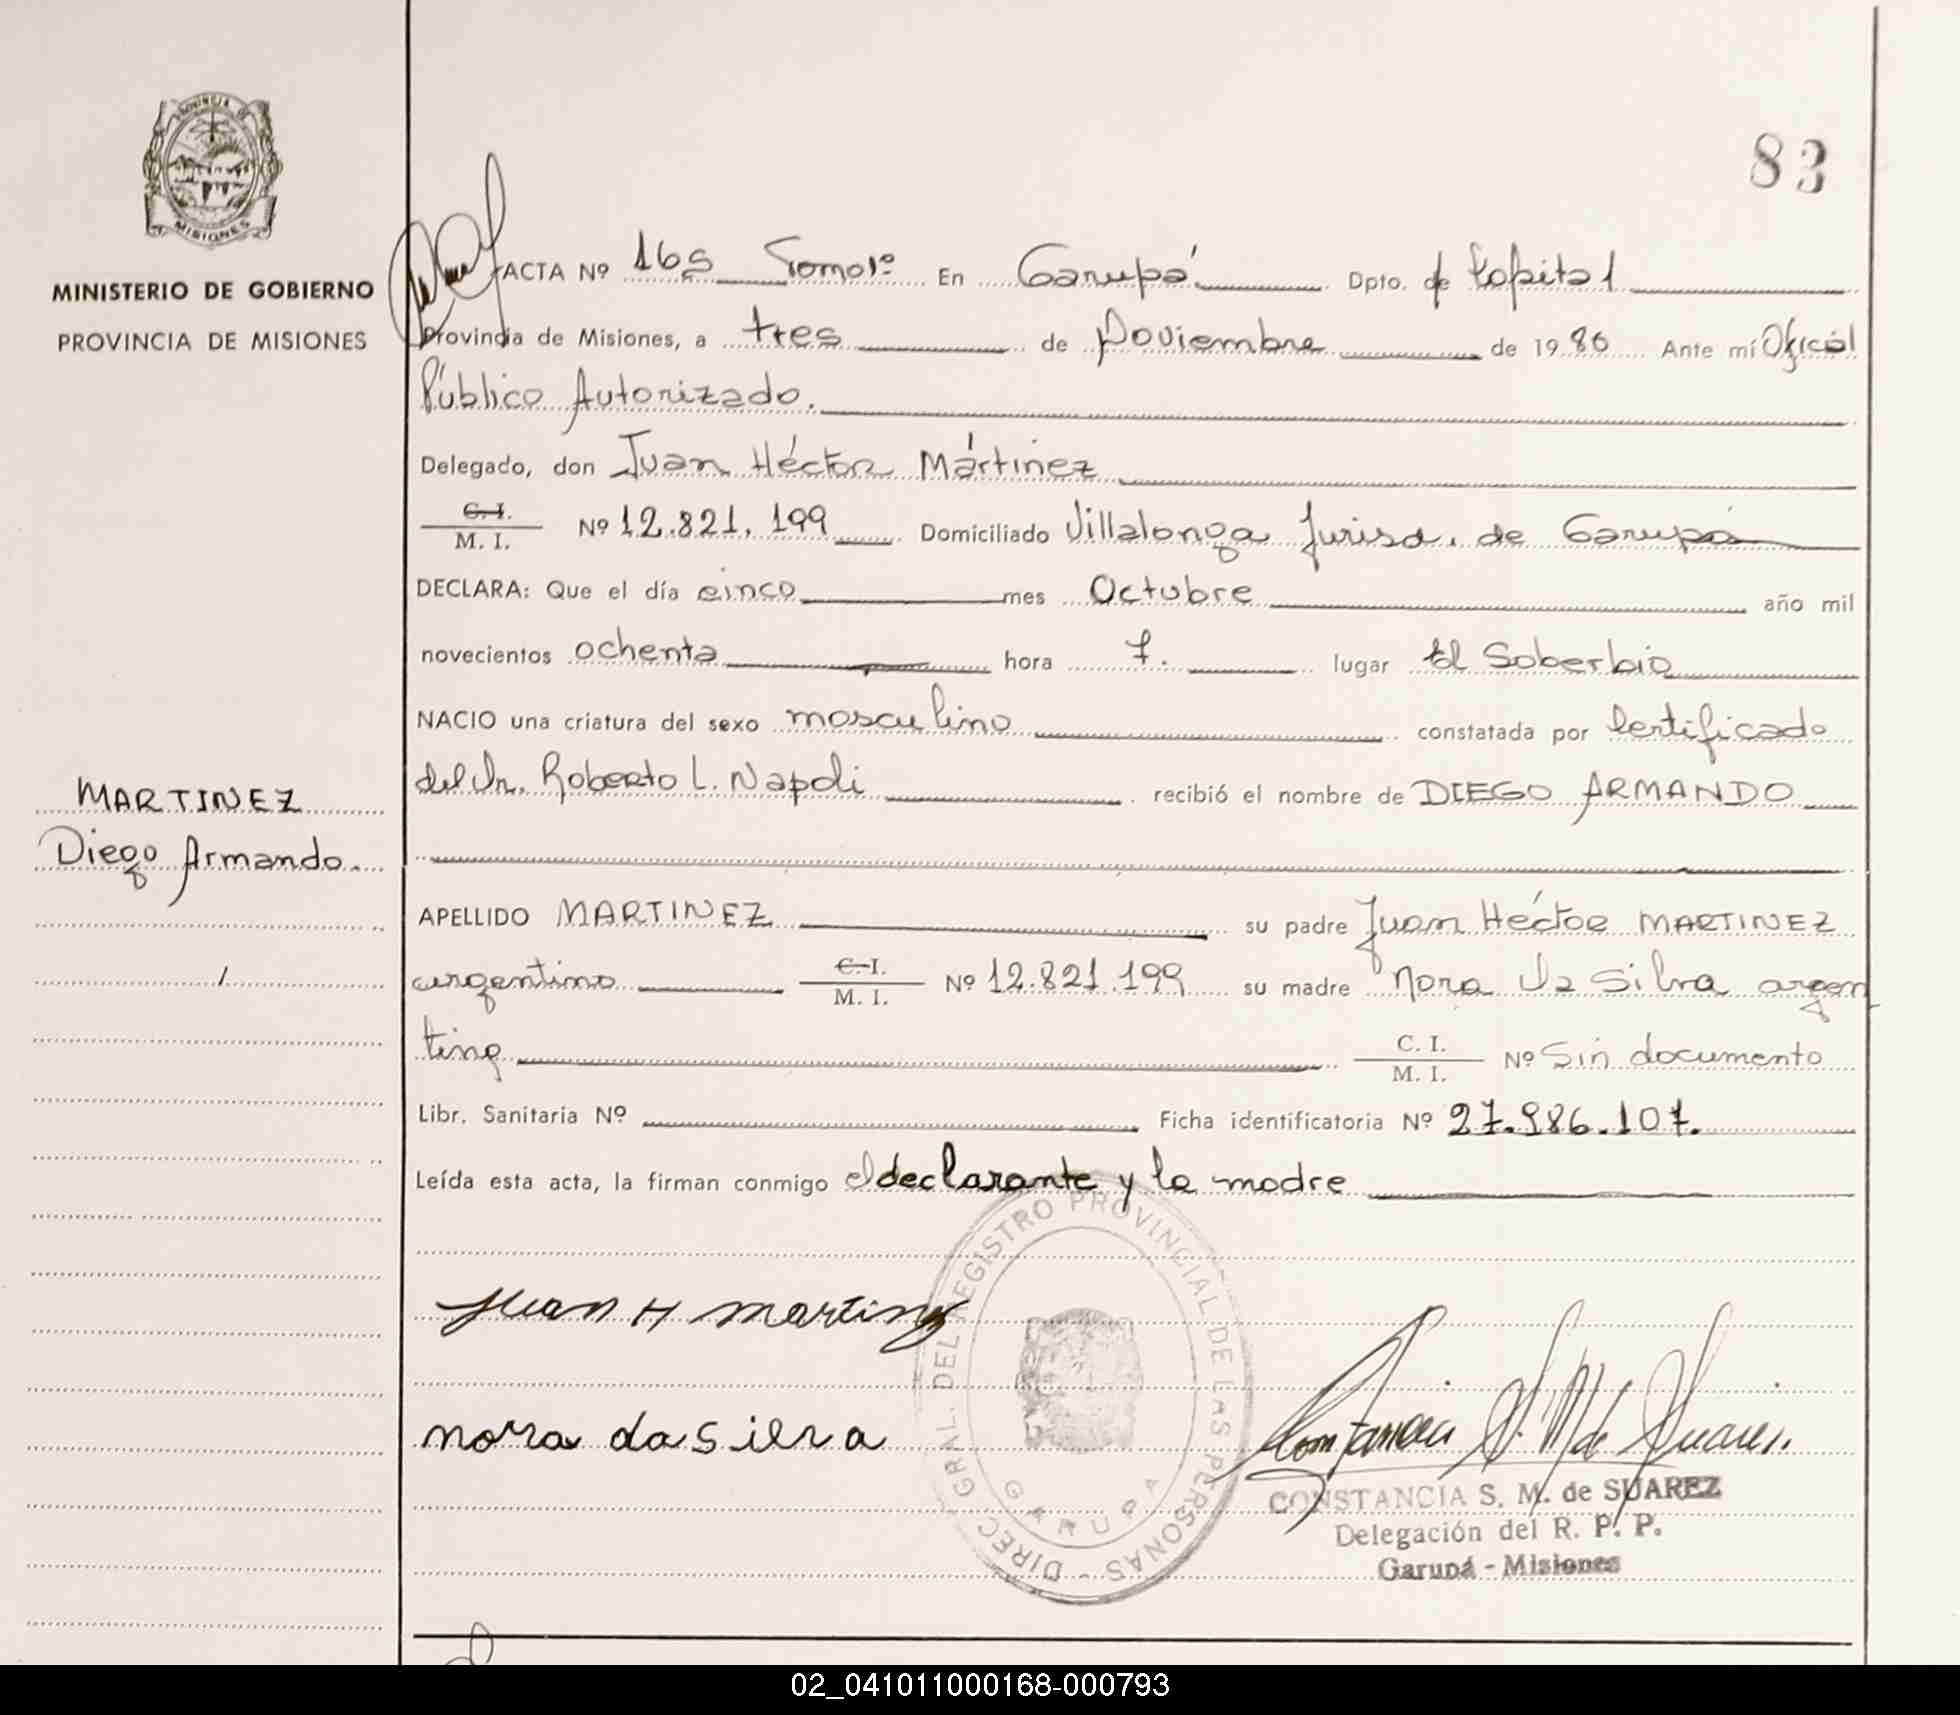 83
PROVINCIA DE
MISIONES
MINISTERIO DE GOBIERNO
PROVINCIA DE MISIONES
ACTA Nº 165 Tomo 1º En Garupá Dpto. de Capital
Provincia de Misiones, a tres de Noviembre de 1980 Ante mí Oficial
Público Autorizado.
Delegado, don Juan Héctor Mártinez
C. I.
M. I. Nº 12.821.199 Domiciliado Villalonga Jurisd. de Garupá
DECLARA: Que el día cinco mes Octubre año mil
novecientos ochenta hora 7. lugar El Soberbio
NACIO una criatura del sexo masculino constatada por Certificado
del Dr. Roberto L. Napoli recibió el nombre de DIEGO ARMANDO
MARTINEZ
Diego Armando.
APELLIDO MARTINEZ su padre Juan Héctor MARTINEZ
argentino C. I.
M. I. Nº 12.821.199 su madre Nora Da Silva argen
tina C. I.
M. I. Nº Sin documento
Libr. Sanitaria Nº Ficha identificatoria Nº 27.986.107.
Leída esta acta, la firman conmigo el declarante y la madre
Juan H martinez
nora da silva
DIREC. GRAL. DEL REGISTRO PROVINCIAL DE LAS PERSONAS -
GARUPA
Constancia S. M. de Suarez.
CONSTANCIA S. M. de SUAREZ
Delegación del R. P. P.
Garupá - Misiones
02_041011000168-000793